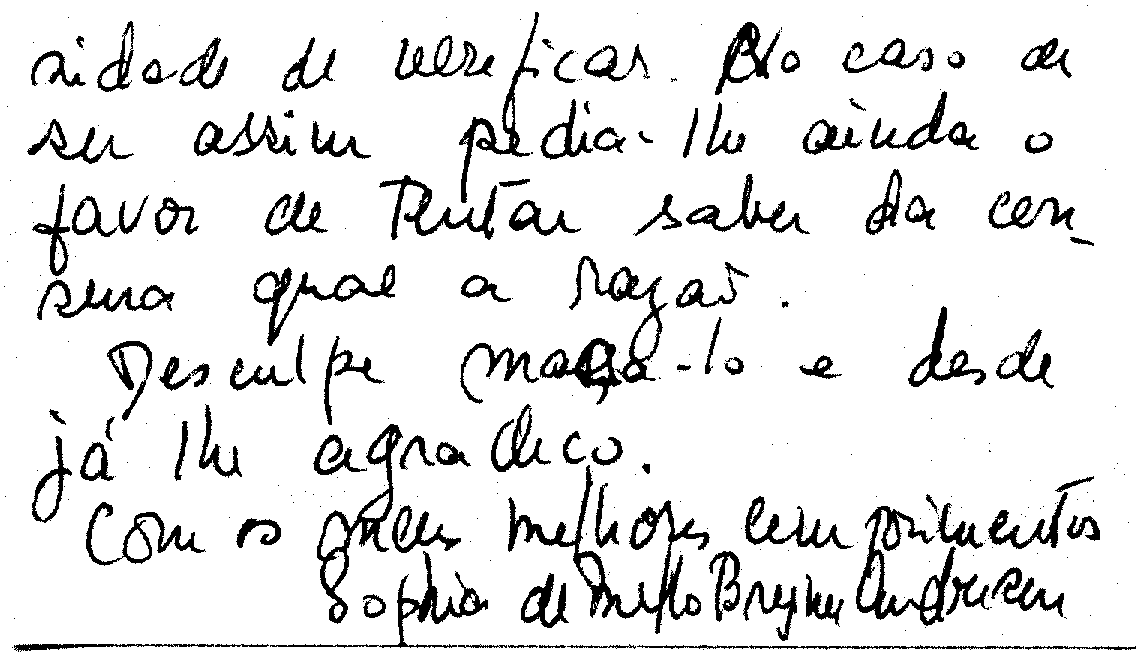 sidade de verificar. No caso de
ser assim pedia-lhe ainda o
favor de tentar saber da cen-
sura qual a razão.
Desculpe maçá-lo e desde
já lhe agradeço.
Com os meus melhores cumprimentos
Sophia de Mello Breyner Andresen